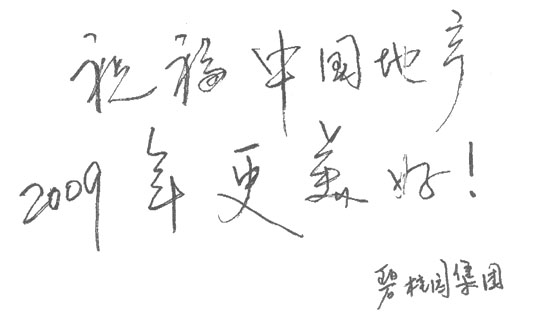 祝福中国地产
2009年更美好!
碧桂园集团